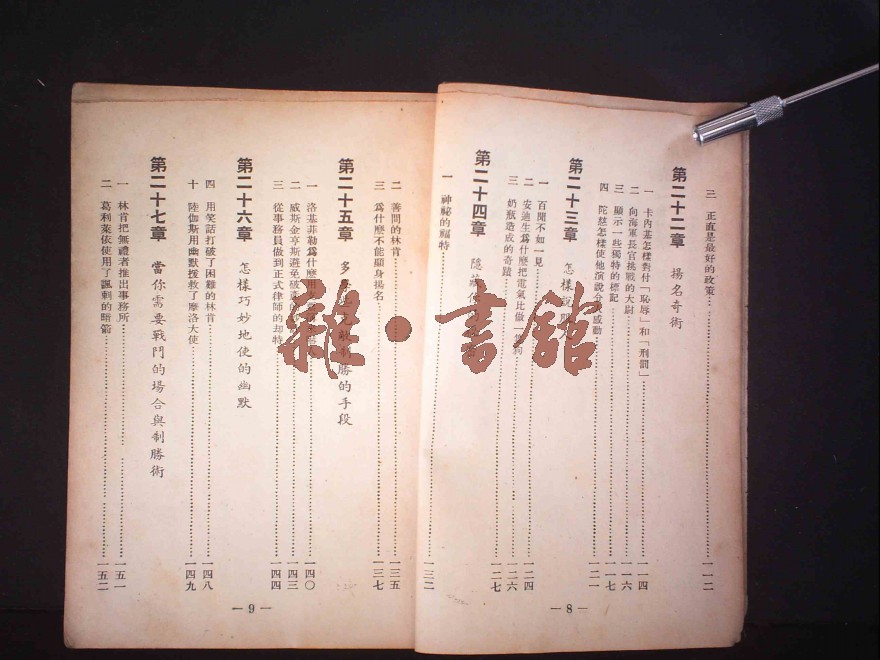 三 正直是最好的政策……一一二
第二十二章 揚名奇術
一 卡内基怎樣對付「恥辱」和「刑罰」……一一四
二 向海軍長官挑戰的大尉……一一六
三 顯示一些獨特的標記……一一七
四 陀慈怎樣使他演說令人感動……一二一
第二十三章 怎樣說服
一 百聞不如一見……一二四
二 安迪生爲什麼把電氣比做一
狗……一二六
三 奶瓶造成的奇蹟……一二七
第二十四章 隱
一 神祕的福特……一三二
—8—
二 善問的林肯……一三五
三 爲什麼不能顯身揚名……一三七
第二十五章 多
制勝的手段
一 洛基菲勒爲什麼用……一四〇
二 威斯金亨斯避免破產的……一四三
三 從事務員做到正式律師的却特……一四四
第二十六章 怎樣巧妙地使的幽默
四 用笑話打破了困難的林肯……一四八
十 陸伽斯用幽默援救了摩洛大使……一四九
第二十七章 當你需要戰鬥的場合與制勝術
一 林肯把無禮者推出事務所……一五一
二 葛利萊依使用了諷刺的暗箭……一五二
—9—
雜·書館